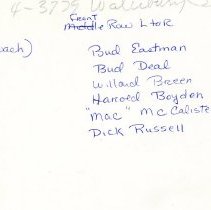 4-3779
Front
Middle Row L to R
Bud Eastman
Bud Deal
Willard Breen
Harrold Boyden
"Mac" McCaliste
Dick Russell